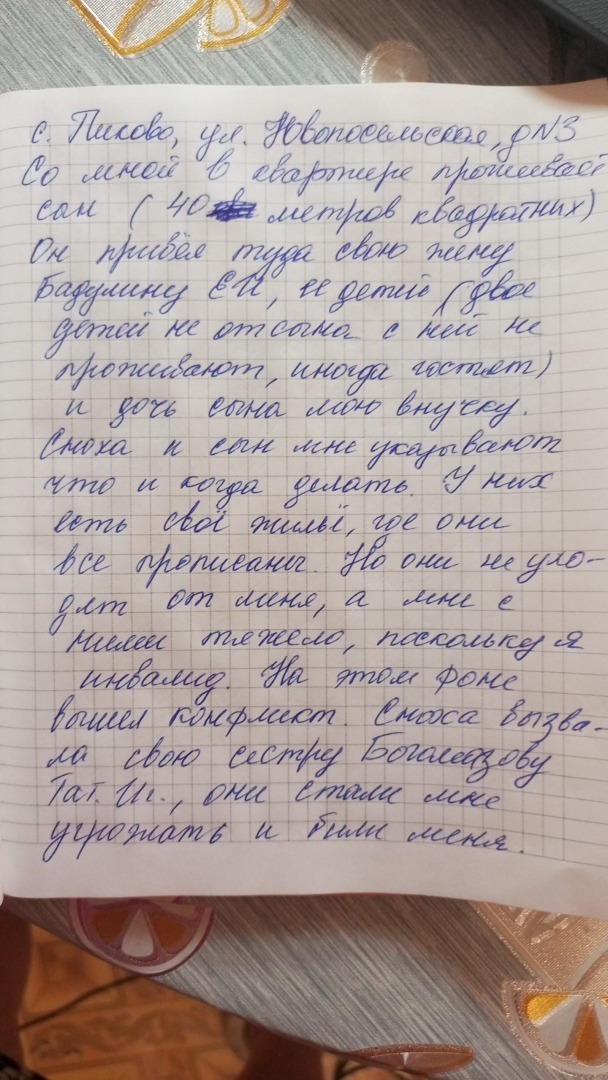 с. Пиково, ул. Новопосельская, д N3
Со мной в квартире проживает
сын (40 метров квадратных)
Он привёл туда свою жену
Бадулину ЕИ, её детей (двое
детей не от сына с ней не
проживают, иногда гостят)
и дочь сына мою внучку.
Сноха и сын мне указывают
что и когда делать. У них
есть своё жильё, где они
все прописаны. Но они не ухо-
дят от меня, а мне с
ними тяжело, поскольку я
инвалид. На этом фоне
вышел конфликт. Сноха вызва-
ла свою сестру Богомазову
Тат. Иг., они стали мне
угрожать и били меня.